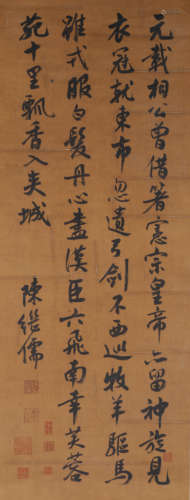 元載相公曾借著憲宗皇帝亦留神旋見
衣冠就東市忽遺弓劍不西巡牧羊驅馬
雖戎服白髮丹心盡漢臣六飛南幸芙蓉
苑十里飄香入夾城
陳繼儒